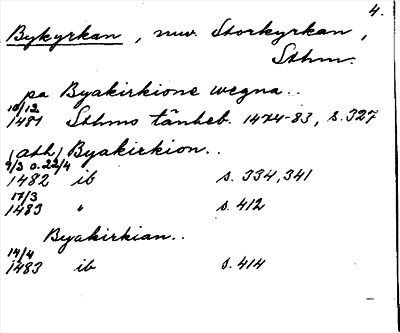 4.
Bykyrkan, nuv. Storkyrkan,
Sthm.
pa Byakirkione wegna..
10/12
1481 Sthms tänkeb. 1474-83, s. 327
(ath) Byakirkion..
9/3 o. 22/4
1482 ib s. 334, 341
17/3
1483 " s. 412
Byakirkian..
14/4
1483 ib s. 414